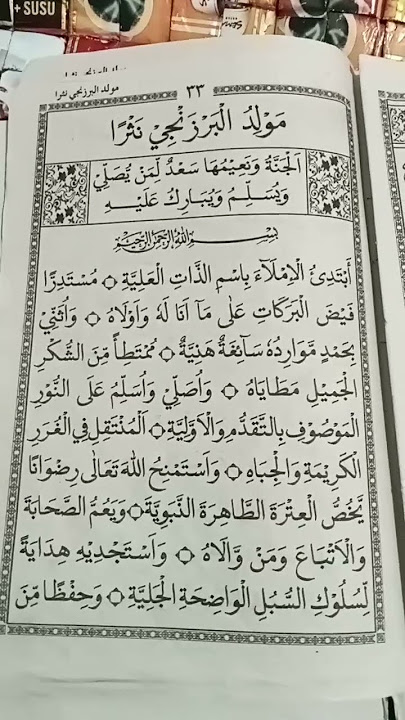 + SUSU
مولد البرزنجي نثرا
٣٣
مَوْلِدُ الْبَرْزَنْجِيْ نَثْرًا
اَلْجَنَّةُ وَنَعِيْمُهَا سَعْدٌ لِّمَنْ يُّصَلِّيْ
وَيُسَلِّمُ وَيُبَارِكُ عَلَيْهِ
بِسْمِ اللهِ الرَّحْمٰنِ الرَّحِيْمِ
أَبْتَدِئُ الْإِمْلَآءَ بِاسْمِ الذَّاتِ الْعَلِيَّةِ ۞ مُسْتَدِرًّا
فَيْضَ الْبَرَكَاتِ عَلٰى مَآ أَنَا لَهُ وَأَوْلَاهُ ۞ وَأُثَنِّيْ
بِحَمْدٍ مَّوَارِدُهُ سَآئِغَةٌ هَنِيَّةٌ ۞ مُمْتَطِأً مِّنَ الشُّكْرِ
الْجَمِيْلِ مَطَايَاهُ ۞ وَأُصَلِّيْ وَأُسَلِّمُ عَلَى النُّوْرِ
الْمَوْصُوْفِ بِالتَّقَدُّمِ وَالْأَوَّلِيَّةِ ۞ اَلْمُنْتَقِلِ فِي الْغُرَرِ
الْكَرِيْمَةِ وَالْجِبَاهِ ۞ وَأَسْتَمْنِحُ اللهَ تَعَالٰى رِضْوَانًا
يَّخُصُّ الْعِتْرَةَ الطَّاهِرَةَ النَّبَوِيَّةَ ۞ وَيَعُمُّ الصَّحَابَةَ
وَالْأَتْبَاعَ وَمَنْ وَّالَاهُ ۞ وَأَسْتَجْدِيْهِ هِدَايَةً
لِّسُلُوْكِ السُّبُلِ الْوَاضِحَةِ الْجَلِيَّةِ ۞ وَحِفْظًا مِّنَ